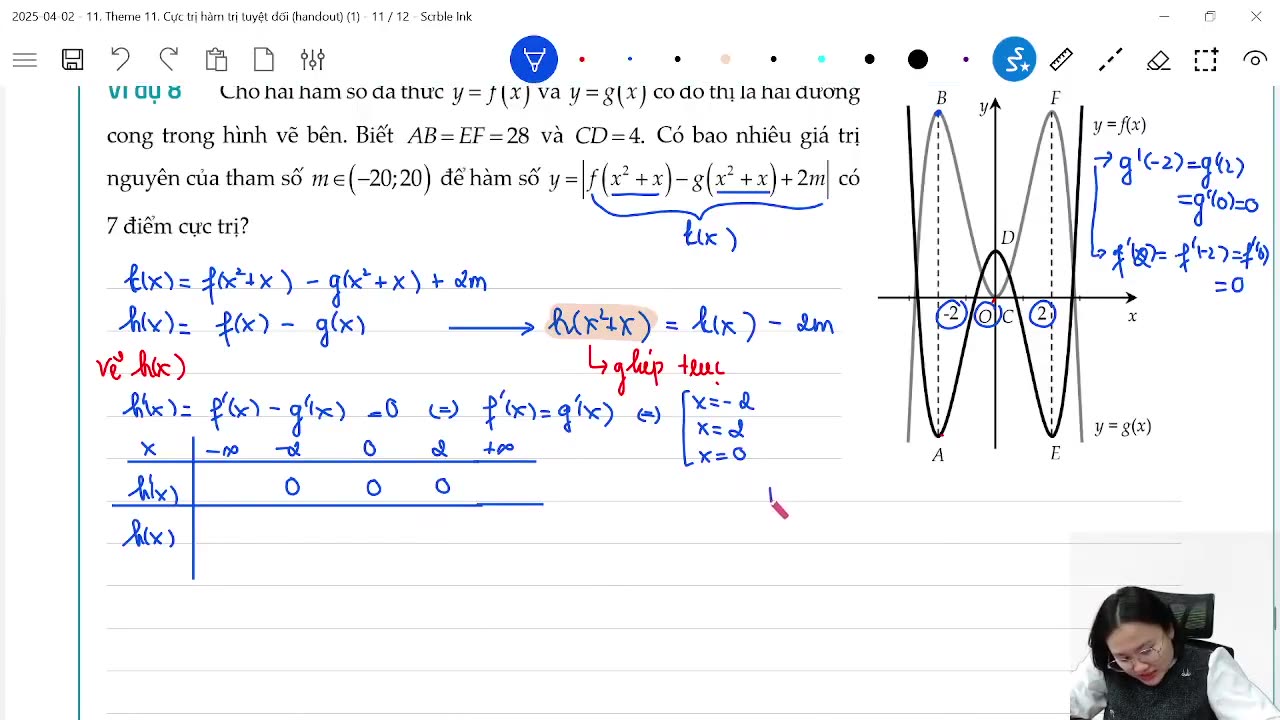 2025-04-02 - 11. Theme 11. Cực trị hàm trị tuyệt đối (handout) (1) - 11 / 12 - Scrble Ink
Ví dụ 8 Cho hai hàm số đa thức y = f(x) và y = g(x) có đồ thị là hai đường
cong trong hình vẽ bên. Biết AB = EF = 28 và CD = 4. Có bao nhiêu giá trị
nguyên của tham số m ∈ (−20;20) để hàm số y = |f(x² + x) − g(x² + x) + 2m| có
7 điểm cực trị?
k(x)
k(x) = f(x²+x) − g(x²+x) + 2m
h(x) = f(x) − g(x) ⟶ h(x²+x) = k(x) − 2m
vẽ h(x)
↳ ghép trục
h'(x) = f'(x) − g'(x) = 0 (=) f'(x) = g'(x) (=) [x = −2
x = 2
x = 0
x −∞ −2 0 2 +∞
h'(x) 0 0 0
h(x)
B y F
y = f(x)
D
-2 O C 2 x
A E
y = g(x)
g'(-2) = g'(2)
= g'(0) = 0
f'(2) = f'(-2) = f'(0)
= 0